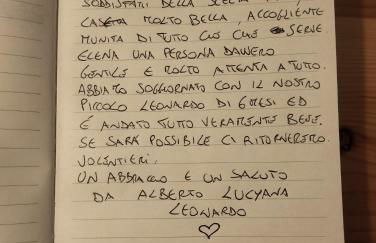 SODDISFATTI DELLA SCELTA
CASETTA MOLTO BELLA, ACCOGLIENTE
MUNITA DI TUTTO CIÒ CHE SERVE
ELENA UNA PERSONA DAVVERO
GENTILE E MOLTO ATTENTA A TUTTO.
ABBIAMO SOGGIORNATO CON IL NOSTRO
PICCOLO LEONARDO DI 6 MESI ED
È ANDATO TUTTO VERAMENTE BENE.
SE SARÀ POSSIBILE CI RITORNEREMO
VOLENTIERI.
UN ABBRACCIO E UN SALUTO
DA ALBERTO LUCYANA
LEONARDO